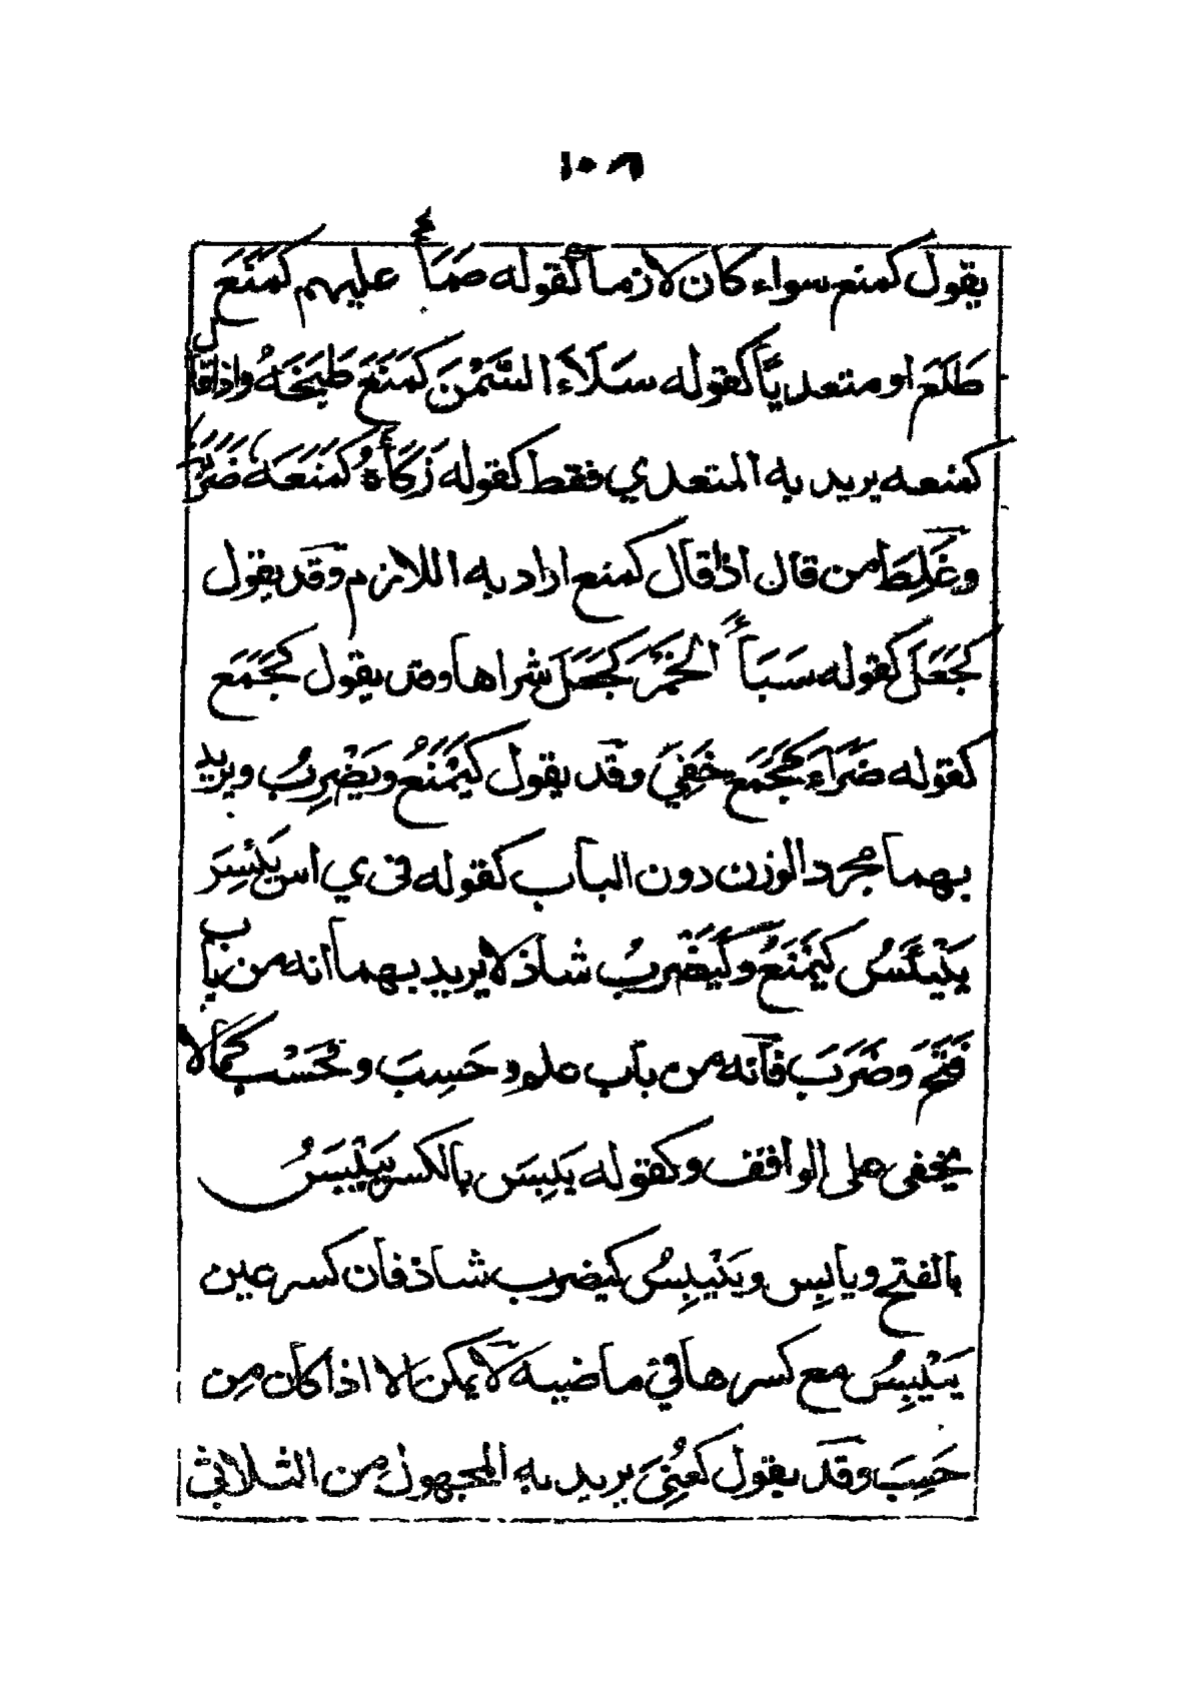 ١٠٨
يقول كمنع سواء كان لازماً كقوله صَمَأَ عليهم كَمَنَعَ
طَلَعَ او متعدياً كقوله سَلَاءَ السَّمْنَ كَمَنَعَ طَبَخَهُ واذا قال
كمنعه يريد به المتعدي فقط كقوله زَكَأَهُ كَمَنَعَهُ ضَرَبَهُ
وغَلِطَ من قال اذا قال كمنع اراد به اللازم وقد يقول
كجَعَلَ كقوله سَبَأَ الخَمْرَ كَجَعَلَ شراها وقد يقول كَجَمَعَ
كقوله ضَرَاءَ كَجَمَعَ خَفِيَ وقد يقول كَيَمْنَعُ ويَضْرِبُ ويريد
بهما مجرد الوزن دون الباب كقوله في ي اس يَئِسَ
يَيْئَسُ كَيَمْنَعُ وكَيَضْرِبُ شاذ لا يريد بهما انه من باب
فَتَحَ وضَرَبَ فانه من باب علم وحَسِبَ وتحْسَبُ كما لا
يخفى على الواقف وكقوله يَبِسَ بالكسر يَيْبَسُ
بالفتح ويابِس ويَيْبِسُ كيضرب شاذ فان كسر عين
يَيْبِسُ مع كسرها في ماضيه لا يمكن الا اذا كان مِن
حَسِبَ وقد يقول كعُنِيَ يريد به المجهول مِن الثلاثي